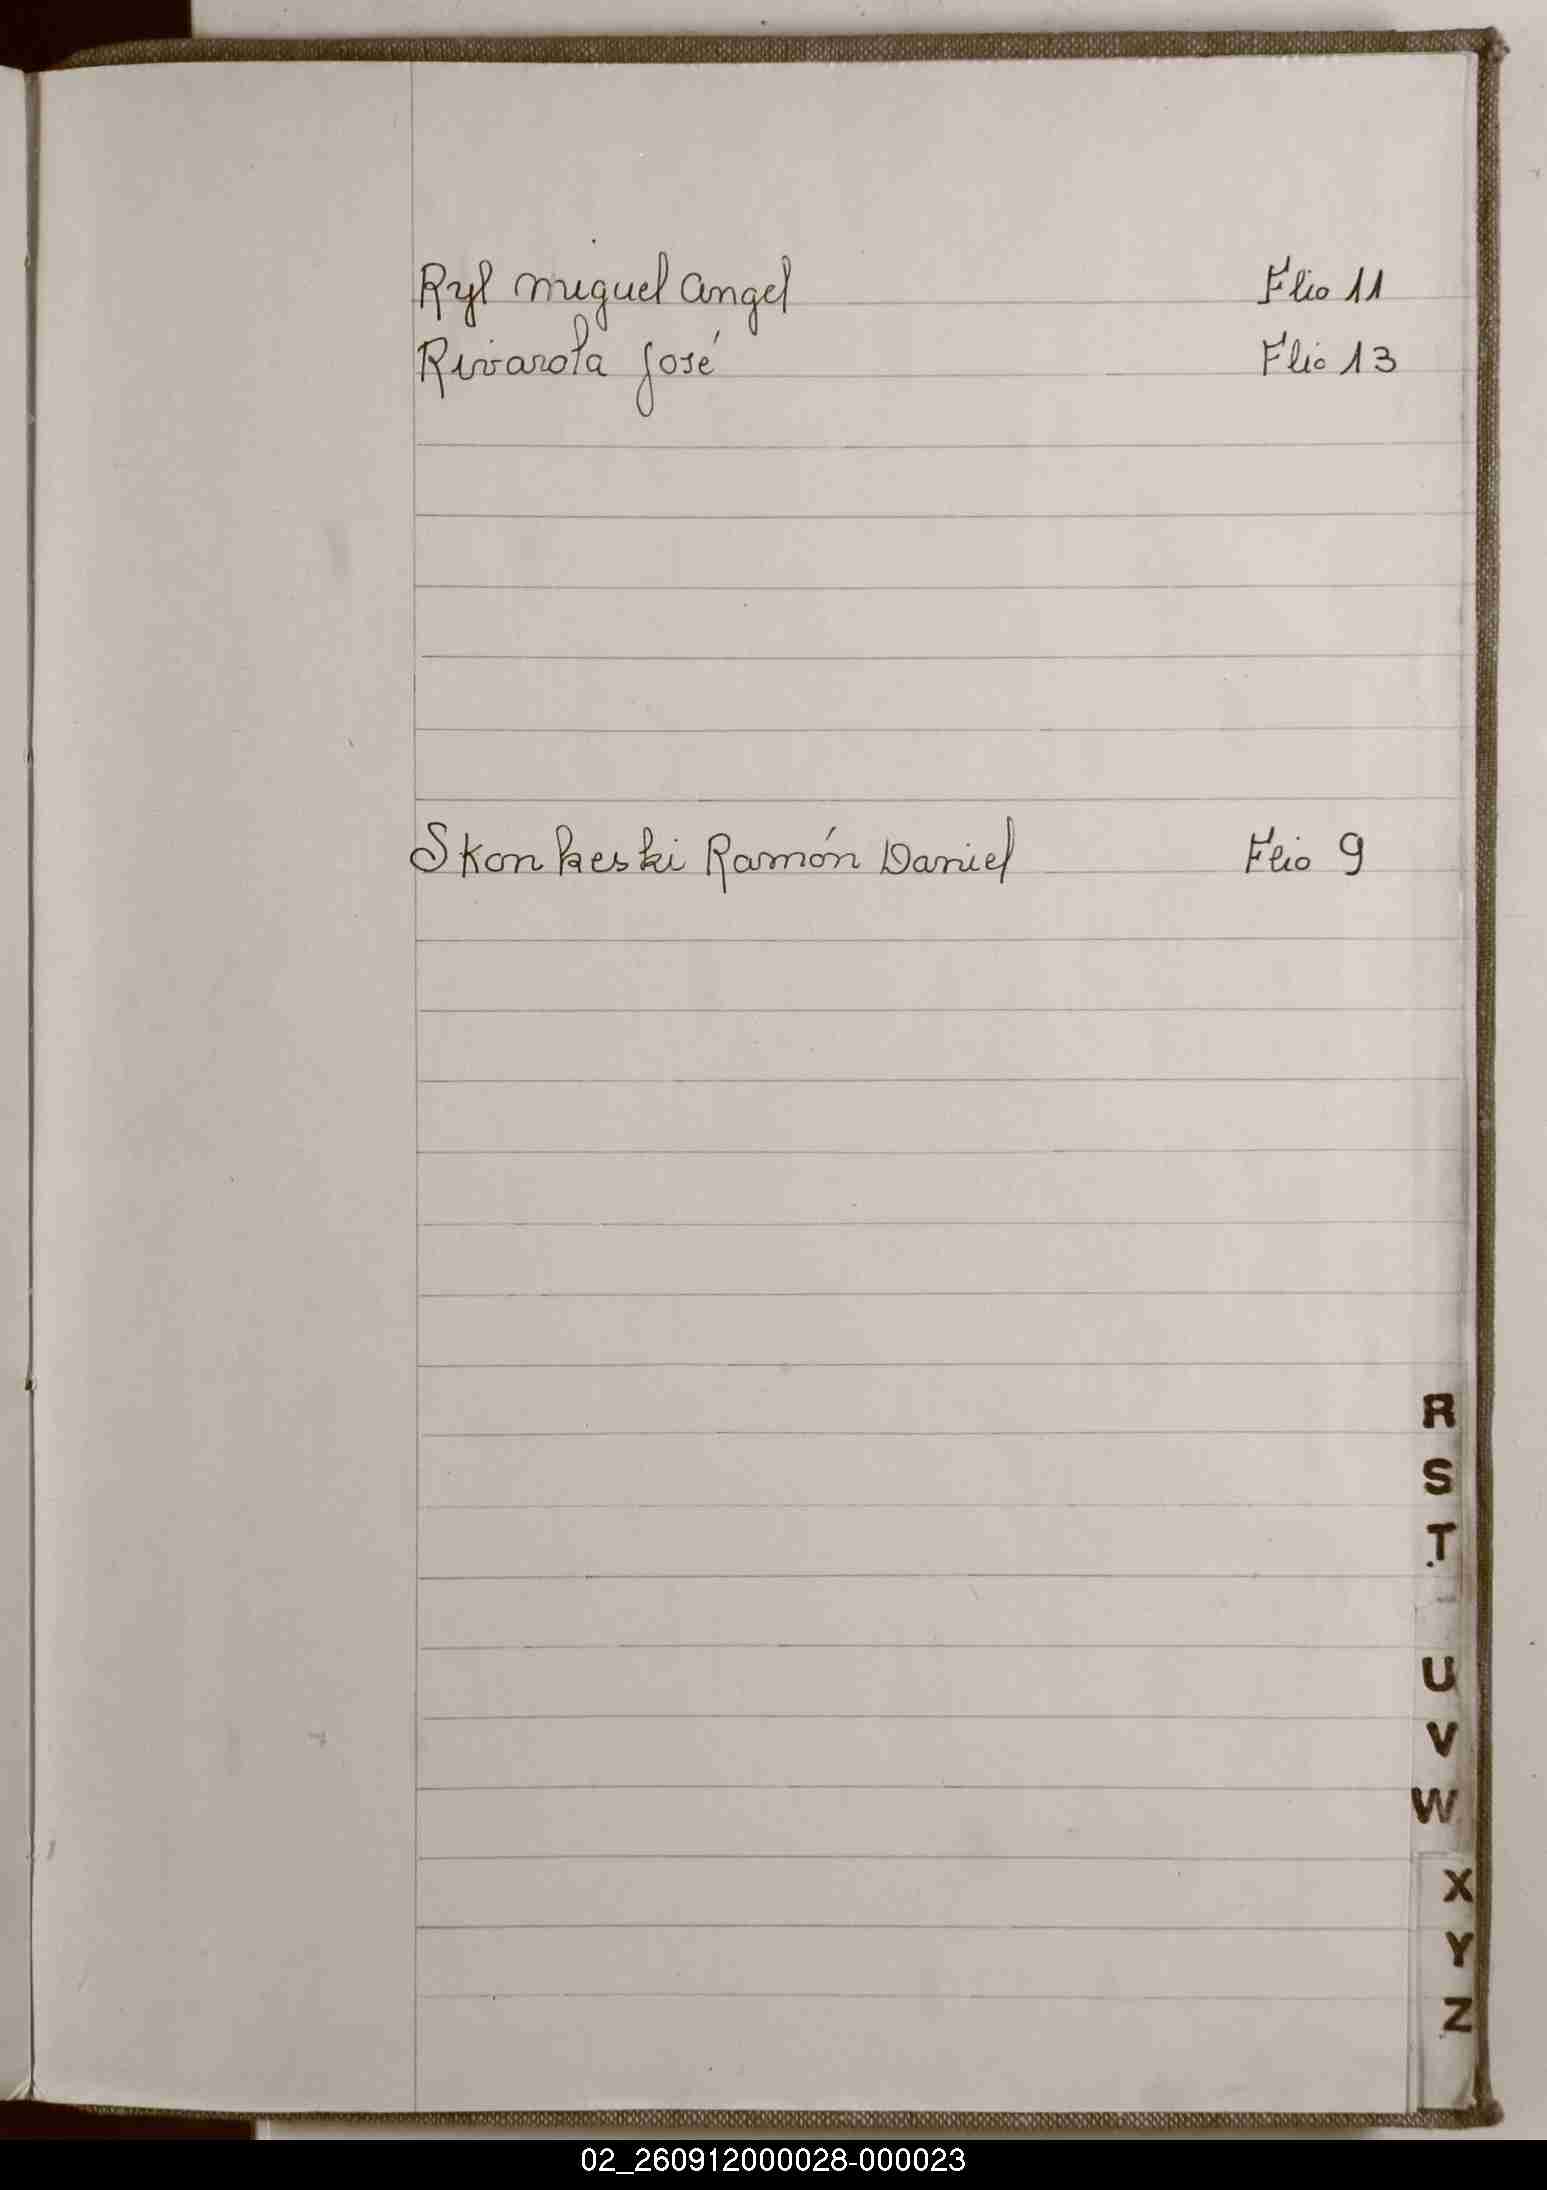 Ryl Miguel Angel Flio 11
Rivarola José Flio 13
Skonkeski Ramón Daniel Flio 9
R
S
T
U
V
W
X
Y
Z
02_260912000028-000023